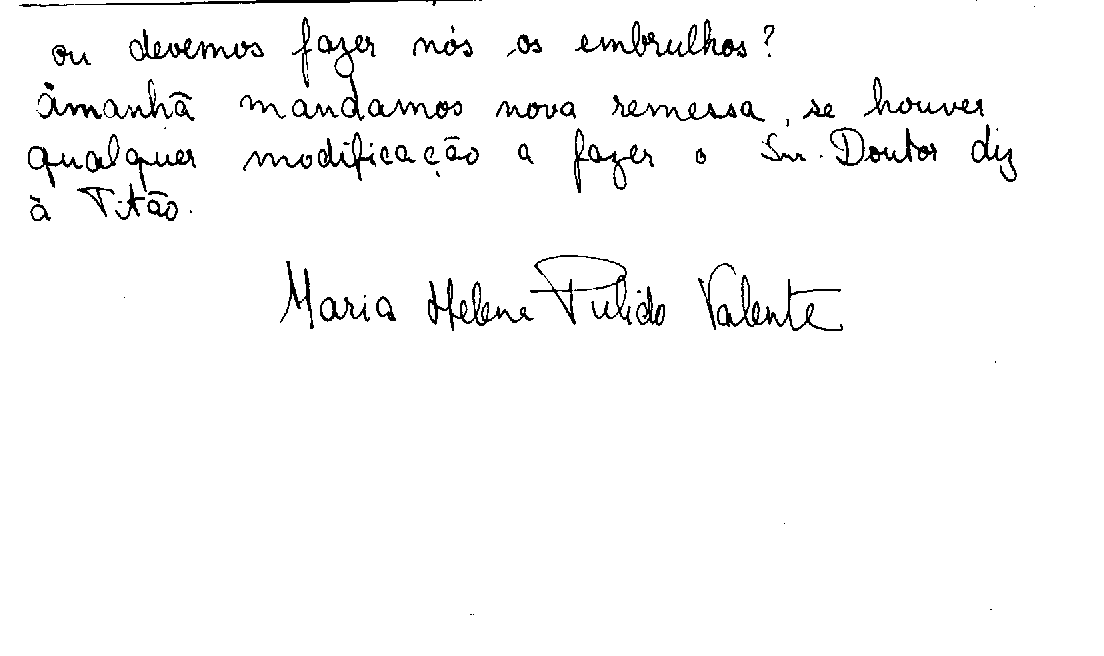 ou devemos fazer nós os embrulhos?
àmanhã mandamos nova remessa, se houver
qualquer modificação a fazer o Snr. Doutor diz
à Titão.
Maria Helena Pulido Valente